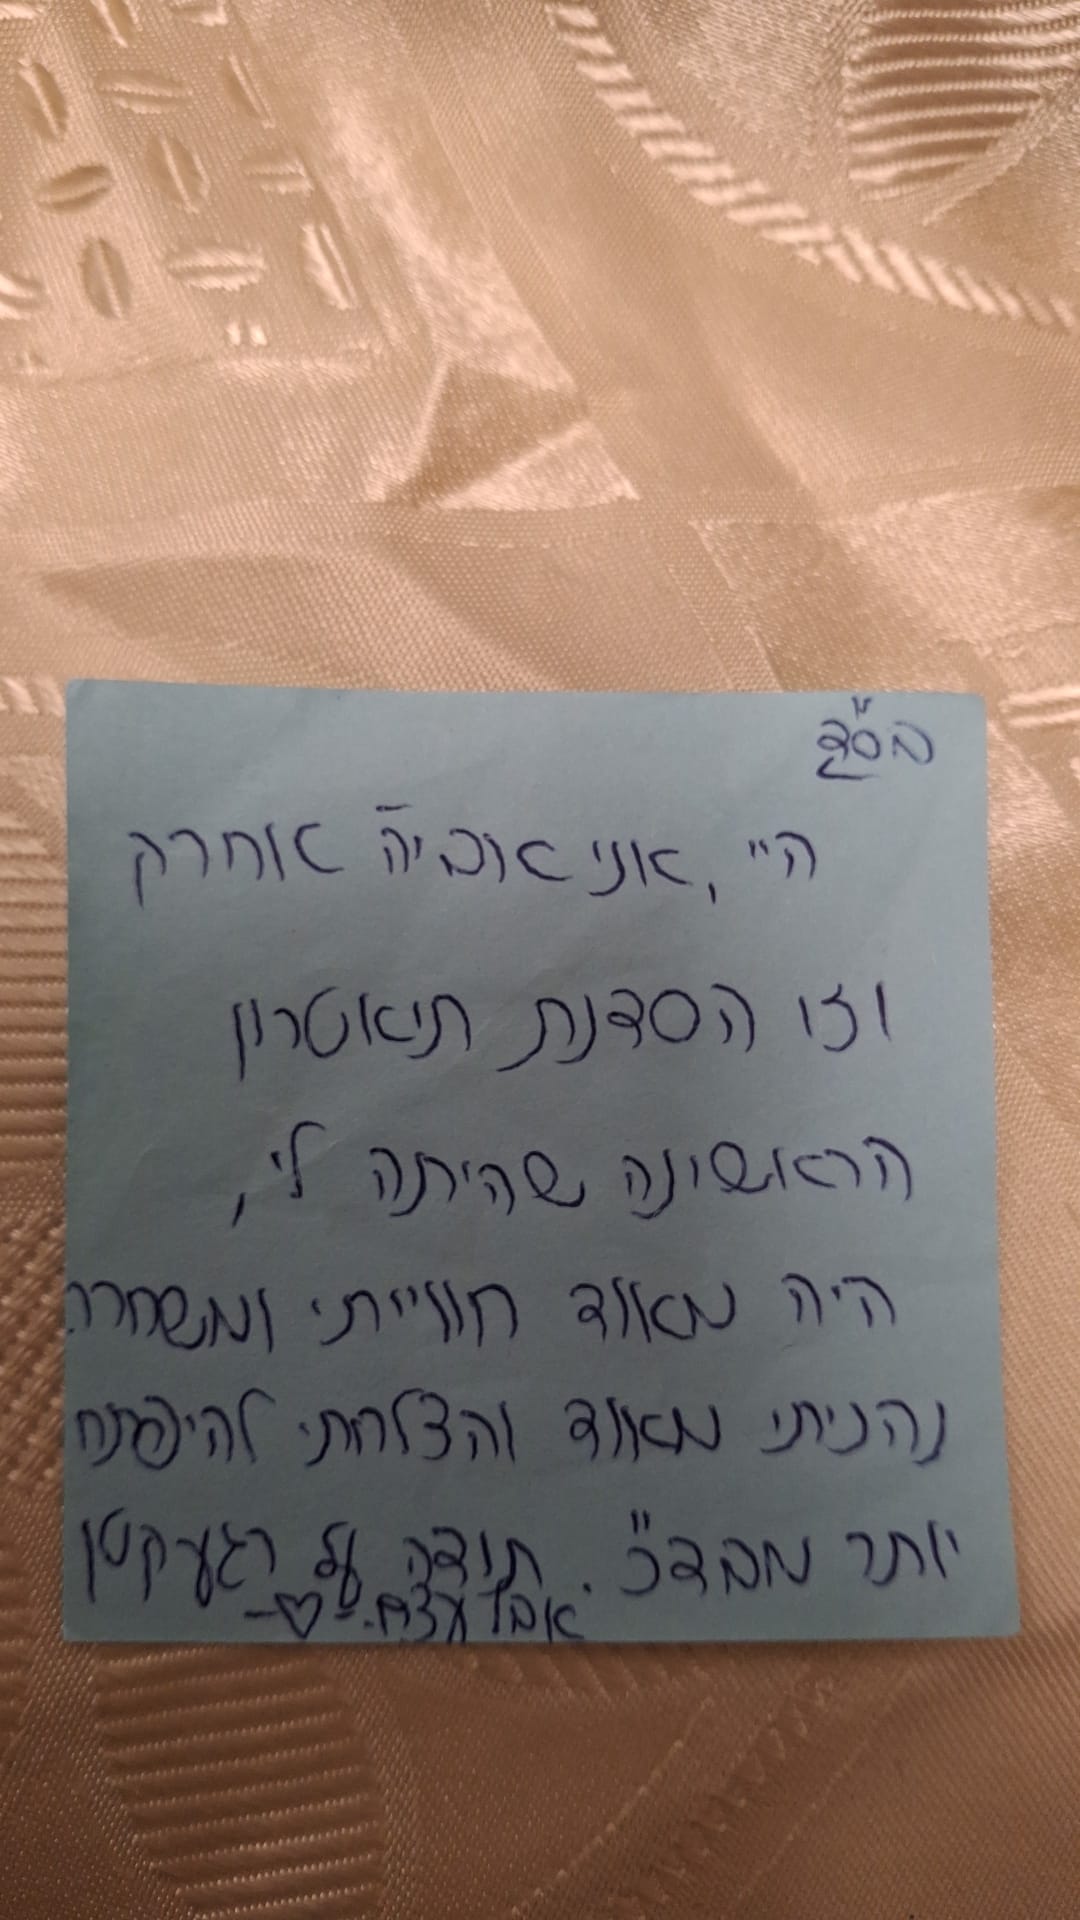 בס"ד
היי, אני אוביה אוחרק
וזו הסדנת תיאטרון
הראשונה שהיתה לי,
היה מאוד חווייתי ומשחרר.
נהניתי מאוד והצלחתי להיפתח
יותר מבד"כ. תודה על רגע קטן
אבל עצום. -♡-